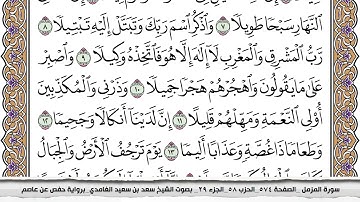 ٱلنَّهَارِ سَبۡحٗا طَوِيلٗا ٧ وَٱذۡكُرِ ٱسۡمَ رَبِّكَ وَتَبَتَّلۡ إِلَيۡهِ تَبۡتِيلٗا ٨
رَّبُّ ٱلۡمَشۡرِقِ وَٱلۡمَغۡرِبِ لَآ إِلَٰهَ إِلَّا هُوَ فَٱتَّخِذۡهُ وَكِيلٗا ٩ وَٱصۡبِرۡ
عَلَىٰ مَا يَقُولُونَ وَٱهۡجُرۡهُمۡ هَجۡرٗا جَمِيلٗا ١٠ وَذَرۡنِي وَٱلۡمُكَذِّبِينَ
أُوْلِي ٱلنَّعۡمَةِ وَمَهِّلۡهُمۡ قَلِيلًا ١١ إِنَّ لَدَيۡنَآ أَنكَالٗا وَجَحِيمٗا ١٢
وَطَعَامٗا ذَا غُصَّةٖ وَعَذَابًا أَلِيمٗا ١٣ يَوۡمَ تَرۡجُفُ ٱلۡأَرۡضُ وَٱلۡجِبَالُ
سورة المزمل _الصفحة ٥٧٤_ الحزب ٥٨_ الجزء ٢٩ _ بصوت الشيخ سعد بن سعيد الغامدي_ برواية حفص عن عاصم